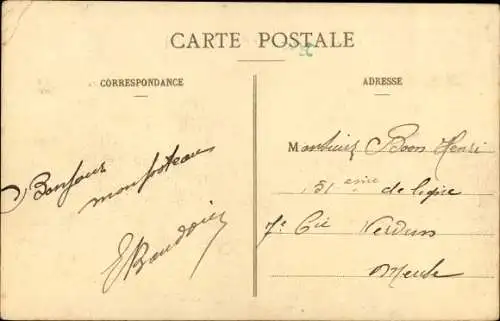 CARTE POSTALE
CORRESPONDANCE
Bonjour
mon poteau
E Baudoin
ADRESSE
Monsieur Boon Henri
151 eme de ligne
7e Cie Verdun
Meuse